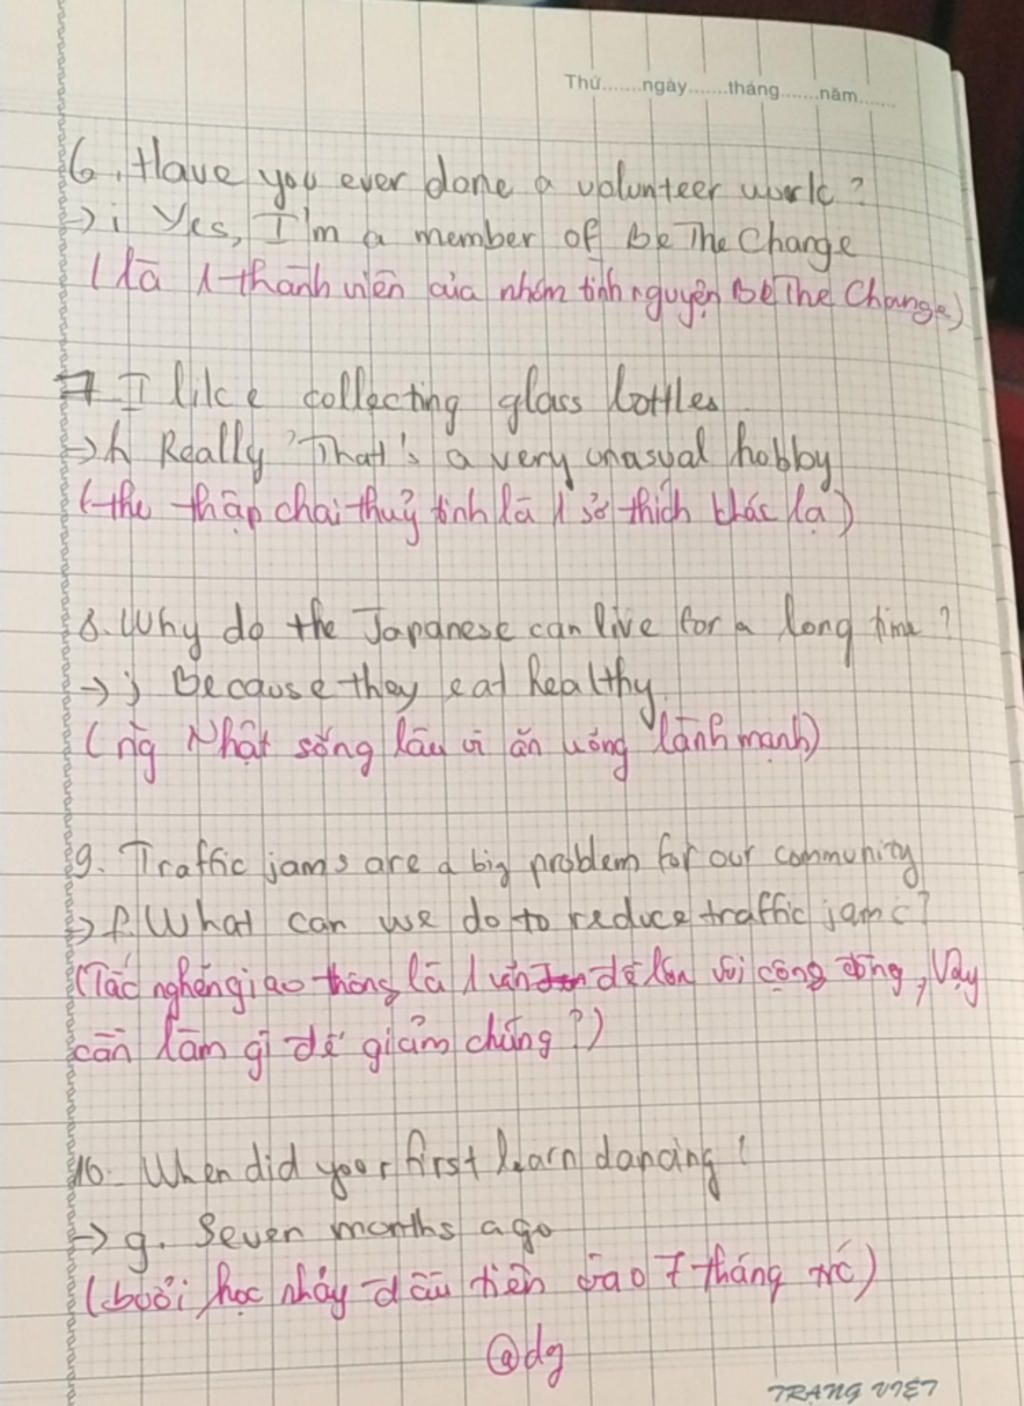 Thứ.......ngày.......tháng.......năm.......
6. Have you ever done a volunteer work?
→ i Yes, I'm a member of Be The Change
(là 1 thành viên của nhóm tình nguyện Be The Change)
7 I like collecting glass bottles
→ h Really? That's a very unasual hobby
(thu thập chai thuỷ tinh là 1 sở thích khác lạ)
8. Why do the Japanese can live for a long time?
→ j Because they eat healthy
(ng Nhật sống lâu vì ăn uống lành mạnh)
9. Traffic jams are a big problem for our community
→ f. What can we do to reduce traffic jams?
(Tắc nghẽn giao thông là 1 vấn đề lớn với cộng đồng, Vậy
cần làm gì để giảm chúng?)
10. When did your first learn dancing?
→ g. Seven months ago
(buổi học nhảy đầu tiên vào 7 tháng trc)
@dg
TRANG VIỆT